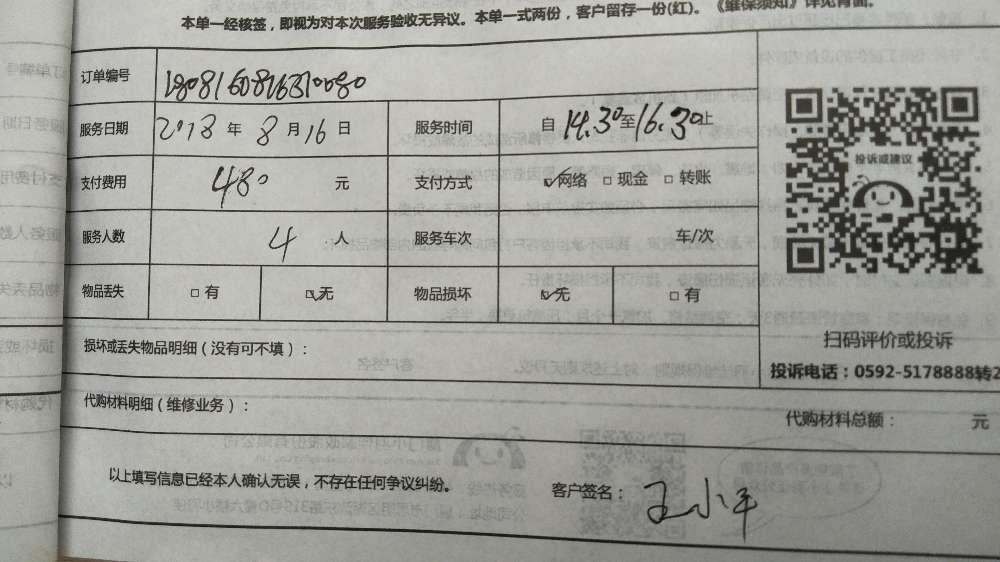 本单一经核签，即视为对本次服务验收无异议。本单一式两份，客户留存一份(红)。《维保须知》详见背面。
订单编号
服务日期 2018 年 8 月 16 日 服务时间 自 14.30 至 16.30 止
支付费用 480 元 支付方式 ☑网络 □现金 □转账
服务人数 4 人 服务车次 车/次
物品丢失 □有 ☑无 物品损坏 ☑无 □有
投诉或建议
扫码评价或投诉
投诉电话：0592-5178888转2
损坏或丢失物品明细（没有可不填）：
代购材料明细（维修业务）： 代购材料总额： 元
以上填写信息已经本人确认无误，不存在任何争议纠纷。 客户签名： 王小平